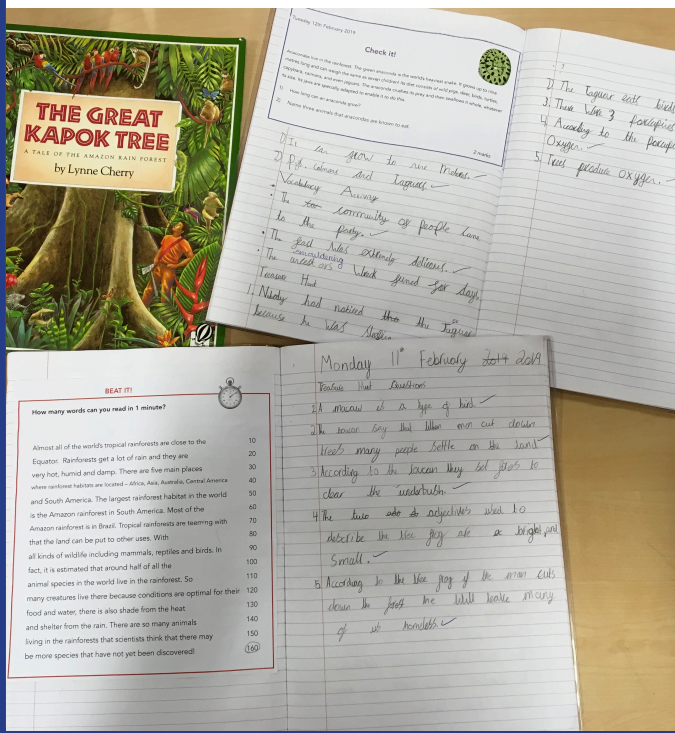 THE GREAT
KAPOK TREE
A TALE OF THE AMAZON RAIN FOREST
by Lynne Cherry
Tuesday 12th February 2019
Check it!
Anacondas live in the rainforest. The green anaconda is the worlds heaviest snake. It grows up to nine
metres long and can weigh the same as seven children! Its diet consists of wild pigs, deer, birds, turtles,
capybara, caimans, and even jaguars. The anaconda crushes its prey and then swallows it whole, whatever
its size. Its jaws are specially adapted to enable it to do this.
1) How long can an anaconda grow?
2) Name three animals that anacondas are known to eat.
2 marks
1) It can grow to nine metres.
2) Pig, caimans and Jaguars.
Vocabulary Activity
• The community of people came
to the party.
• The feast was extremly delicous.
• The smouldering
work fumed for days
Treasure Hunt
1. Nobody had noticed the the Jaguar
because he was
2) The Jaguar eats birds
3. There were 3 porcupines
4. According to the porcupi
Oxygen.
5. Trees produce oxygen.
BEAT IT!
How many words can you read in 1 minute?
Almost all of the world's tropical rainforests are close to the 10
Equator. Rainforests get a lot of rain and they are 20
very hot, humid and damp. There are five main places 30
where rainforest habitats are located – Africa, Asia, Australia, Central America 40
and South America. The largest rainforest habitat in the world 50
is the Amazon rainforest in South America. Most of the 60
Amazon rainforest is in Brazil. Tropical rainforests are teeming with 70
that the land can be put to other uses. With 80
all kinds of wildlife including mammals, reptiles and birds. In 90
fact, it is estimated that around half of all the 100
animal species in the world live in the rainforest. So 110
many creatures live there because conditions are optimal for their 120
food and water, there is also shade from the heat 130
and shelter from the rain. There are so many animals 140
living in the rainforests that scientists think that there may 150
be more species that have not yet been discovered! 160
Monday 11th February 2014 2019
Treasure Hunt Questions
1. A macaw is a type of bird.
2. The toucan say that when men cut down
trees many people settle on the land
3. According to the toucan they set fires to
clear the underbrush.
4. The two adjectives used to
describe the tree frog are bright and
small.
5. According to the tree frog if the man cuts
down the forest he will leave many
of us homeless.